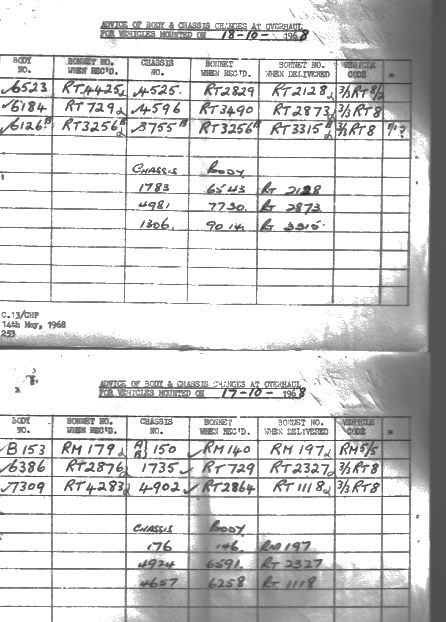 ADVICE OF BODY & CHASSIS CHANGES AT OVERHAUL
FOR VEHICLES MOUNTED ON 18-10- 1968
BODY NO. BONNET NO. WHEN REC'D. CHASSIS NO. BONNET WHEN REC'D. BONNET NO. WHEN DELIVERED VEHICLE CODE
✓6523 RT4425 2 ✓4525 RT2829 RT2128 2 3/3RT8/2
✓6184 RT729 2 ✓4596 RT3490 RT2873 2 3/3RT8
✓6126 B RT3256 B 2 ✓3755 B RT3256 B RT3315 B 2 3/3RT8
CHASSIS BODY
1783 6543 RT 2128
4981 7730. RT 2873
1306. 9014. RT 3315.
C.13/CHP
14th May, 1968
253
ADVICE OF BODY & CHASSIS CHANGES AT OVERHAUL
FOR VEHICLES MOUNTED ON 17-10- 1968
BODY NO. BONNET NO. WHEN REC'D. CHASSIS NO. BONNET WHEN REC'D. BONNET NO. WHEN DELIVERED VEHICLE CODE
✓B153 RM179 2 A B 150 ✓RM140 RM197 2 RM5/5
✓6386 RT2876 2 1735 ✓RT729 RT2327 2 3/3RT8
✓7309 RT4283 2 4902 ✓RT2864 RT1118 2 3/3RT8
CHASSIS BODY
176 146. RM 197
4924 6591. RT 2327
4657 6258 RT 1118